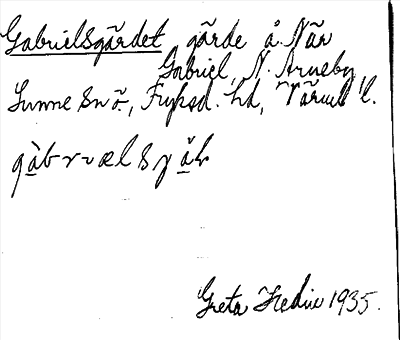 Gabrielsgärdet gärde å. När
Gabriel, N. Arneby
Sunne sn ö., Fryksd. hd, Värml l.
gàbrɩælsjäɫ
Greta Hedin 1935.